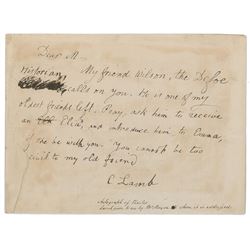 Dear M—
My friend Wilson, the Defoe
Historian,
calls on you. He is one of my
oldest friends left. Pray, ask him to receive
an Elia, and introduce him to Emma,
if she be with you. You cannot be too
civil to my old friend
C Lamb
Autograph of Charles
Lamb given to me by Mr Moxon to whom it is addressed.